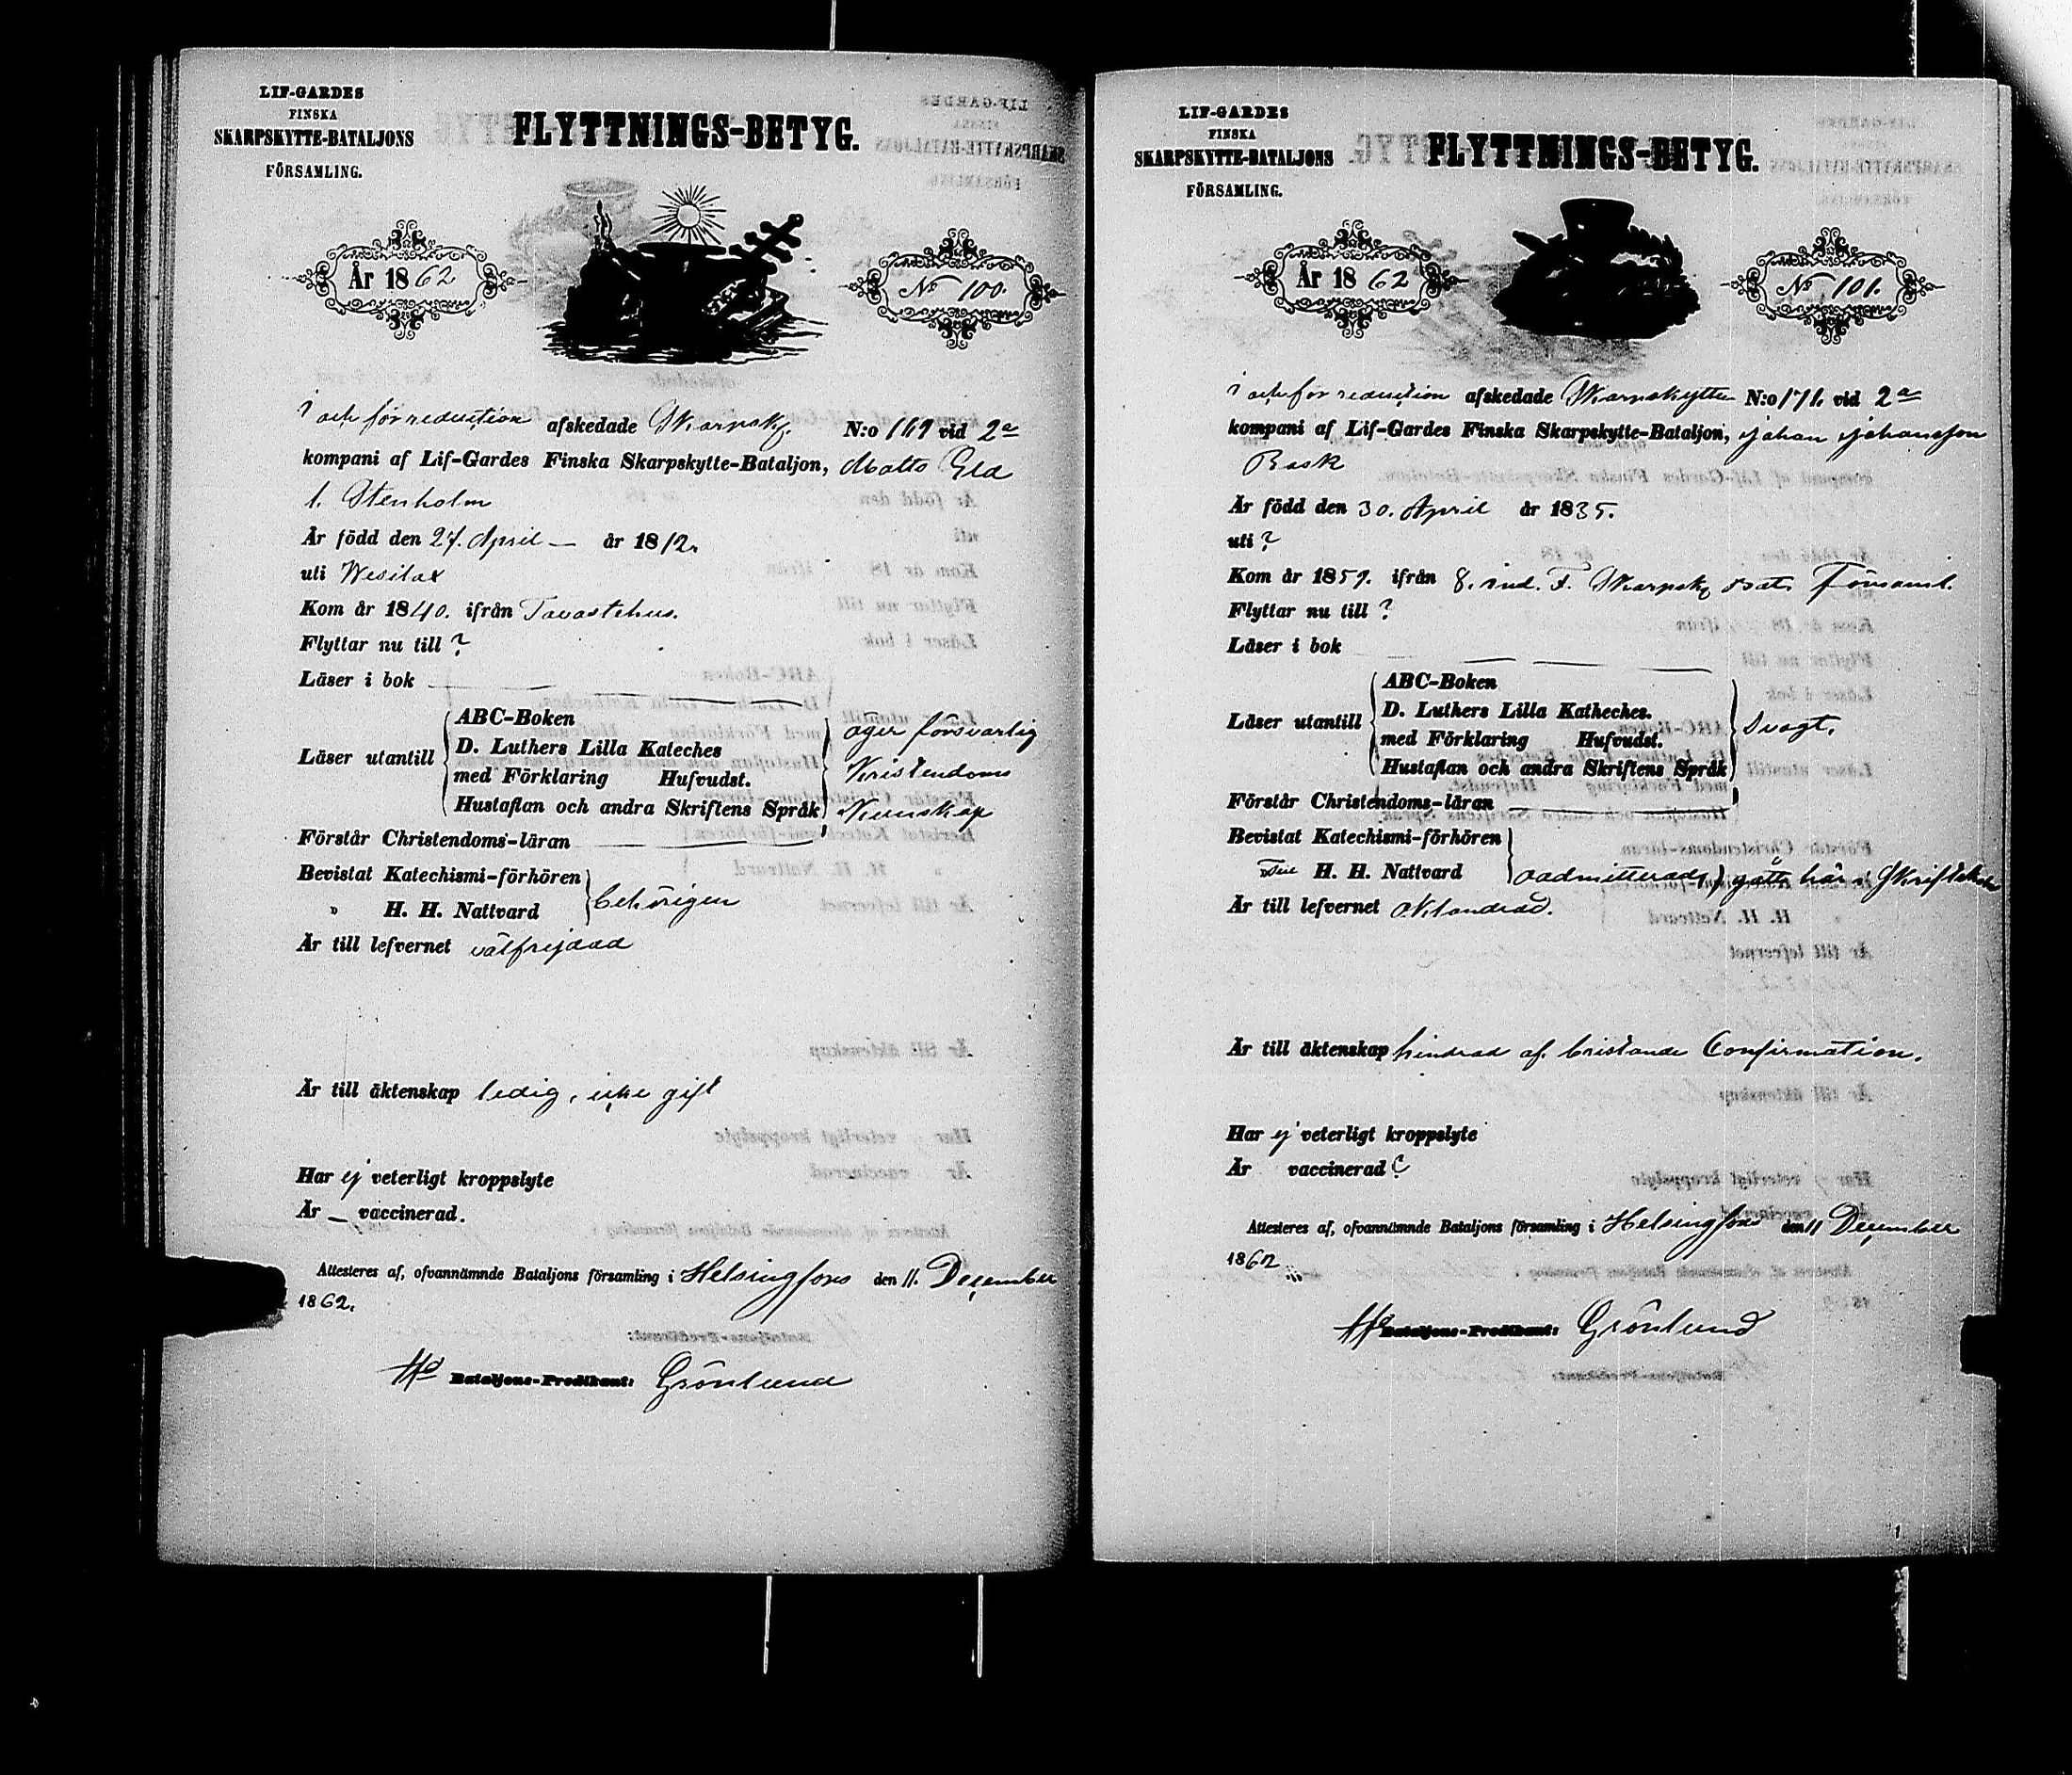 LIF-GARDES
FINSKA
SKARPSKYTTE-BATALJONS
FÖRSAMLING.
FLYTTNINGS-BETYG.
År 1862
No 100.
i och för reduction afskedade Skarpsk. N:o 169 vid 2a
kompani af Lif-Gardes Finska Skarpskytte-Bataljon, Matts
l. Stenholm
Är född den 27. April — år 1812.
uti Wesilax
Kom år 1840. ifrån Tavastehus.
Flyttar nu till ?
Läser i bok
Läser utantill
ABC-Boken
D. Luthers Lilla Kateches
med Förklaring Hufvudst.
Hustaflan och andra Skriftens Språk
äger försvarlig
Kristendoms
Kunskap
Förstår Christendoms-läran
Bevistat Katechismi-förhören
" H. H. Nattvard
behörigen
Är till lefvernet välfrejdad
Är till äktenskap ledig, icke gift
Har ej veterligt kroppslyte
Är — vaccinerad.
Attesteres af, ofvannämnde Bataljons församling i Helsingfors den 11. December
1862.
Bataljons-Predikant: Grönlund
LIF-GARDES
FINSKA
SKARPSKYTTE-BATALJONS
FÖRSAMLING.
FLYTTNINGS-BETYG.
År 1862
No 101.
i och för reduction afskedade Skarpskytten N:o 171. vid 2a
kompani af Lif-Gardes Finska Skarpskytte-Bataljon, Johan Johansson
Bask
Är född den 30. April år 1835.
uti ?
Kom år 1859. ifrån 8. ind. F. Skarpsk. Bat. Församl.
Flyttar nu till ?
Läser i bok
Läser utantill
ABC-Boken
D. Luthers Lilla Katheches.
med Förklaring Hufvudst.
Hustaflan och andra Skriftens Språk
Svagt.
Förstår Christendoms-läran
Bevistat Katechismi-förhören
Till H. H. Nattvard
oadmitterad, gått här i Skriftskola
Är till lefvernet oklandrad.
Är till äktenskap hindrad af bristande Confirmation.
Har ej veterligt kroppslyte
Är vaccinerad ?
Attesteres af, ofvannämnde Bataljons församling i Helsingfors den 11 December
1862
Bataljons-Predikant: Grönlund